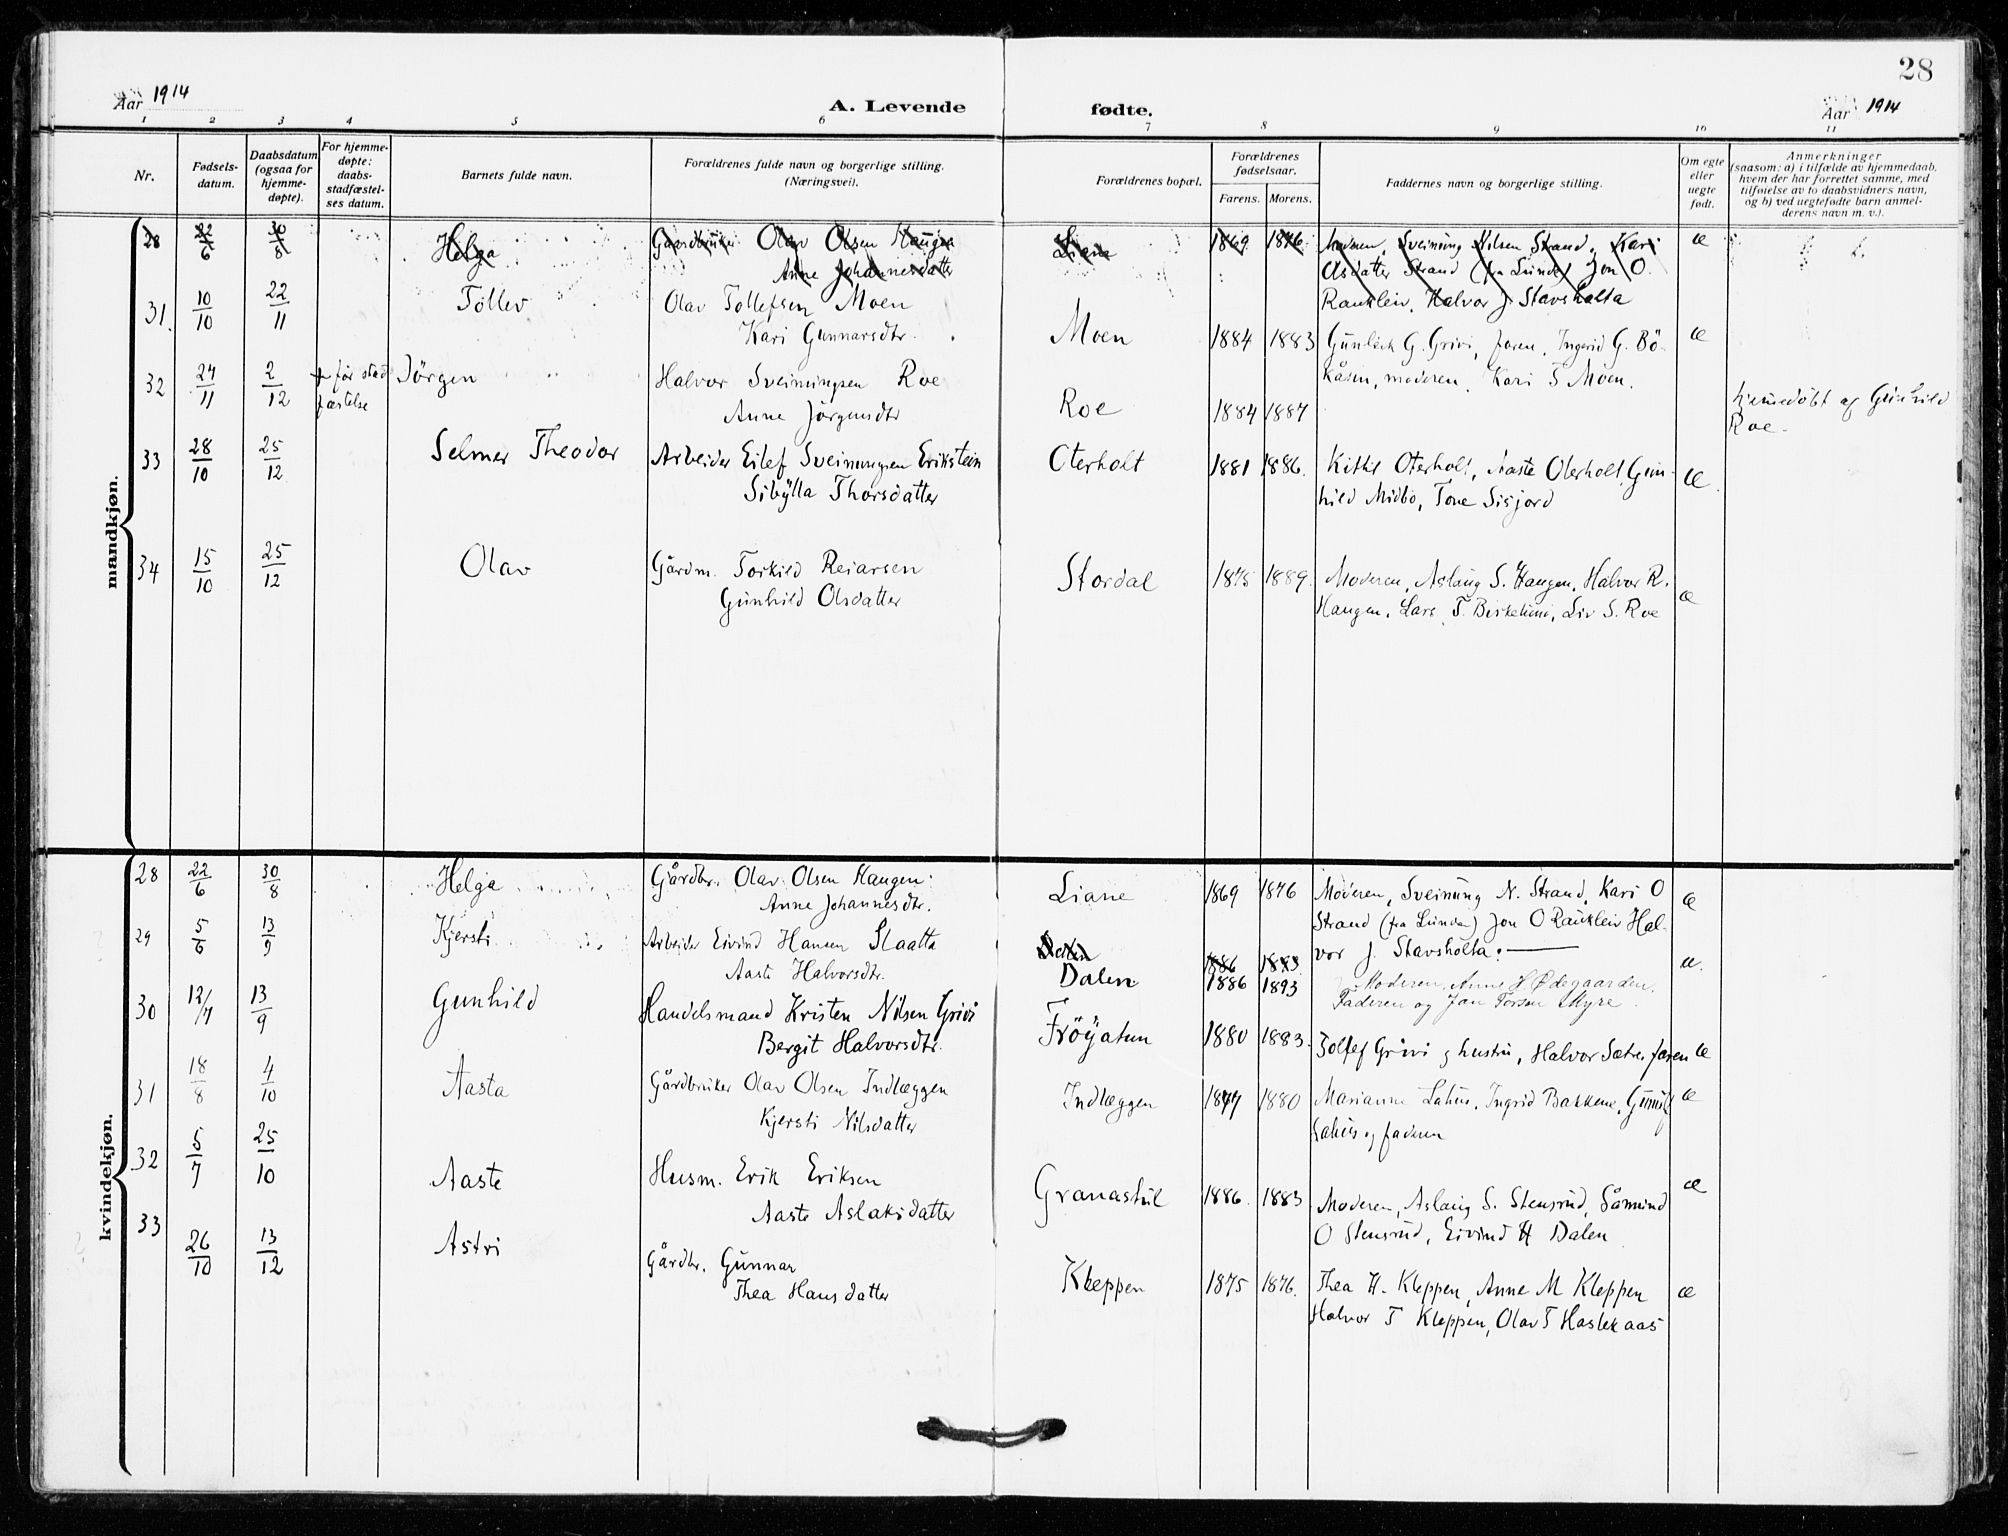 28
Aar 1914
A. Levende fødte.
Aar 1914
1 2 3 4 5 6 7 8 9 10 11
Nr.
Fødsels-
datum.
Daabsdatum
(ogsaa for
hjemme-
døpte).
For hjemme-
døpte:
daabs-
stadfæstel-
ses datum.
Barnets fulde navn.
Forældrenes fulde navn og borgerlige stilling.
(Næringsvei).
Forældrenes bopæl.
Forældrenes
fødselsaar.
Farens. Morens.
Faddernes navn og borgerlige stilling.
Om egte
eller
uegte
født.
Anmerkninger
(saasom: a) i tilfælde av hjemmedaab,
hvem der har forrettet samme, med
tilføielse av to daabsvidners navn,
og b) ved uegtefødte barn anmel-
derens navn m. v.).
mandkjøn.
28 22/6 30/8 Helga Gaardbruker Olav Olsen Haugen Liane 1869 1876 Moderen, Sveinung Nilsen Strand, Kari æ
Anne Johannesdatter Olsdatter Strand (fra Lunde) Jon O.
Rauklein, Halvor J. Stavsholta
31. 10/10 22/11 Tollev Olav Tollefsen Moen
Kari Gunnarsdtr. Moen 1884 1883 Gunleik G. Grivi, faren, Ingerid G. Bö- æ
kåsin, moderen, Kari T Moen.
32 24/11 2/12 før stad
fæstelse Jörgen Halvor Sveinungsen Roe
Anne Jörgensdtr Roe 1884 1887 hjemmedöbt af Gunhild
Roe.
33 28/10 25/12 Selmer Theodor Arbeider Eilef Sveinungsen Erikstein Oterholt 1881 1886. Kittil Oterholt, Aaste Oterholt, Gun- æ.
Sibylla Thorsdatter hild Midbo, Tone Sisjord
34 15/10 25/12 Olav Gårdm. Torkild Reiarsen Stordal 1875 1889. Moderen, Aslaug S. Haugen, Halvor R. æ
Gunhild Olsdatter Haugen, Lars T. Birkelund, Liv S. Roe
kvindekjøn.
28 22/6 30/8 Helga Gårdbr. Olav Olsen Haugen Liane 1869 1876 Moderen, Sveinung N. Strand, Kari O æ
Anne Johannesdtr. Strand (fra Lunde) Jon O Rauklein Hal-
vor J. Stavsholta.
29 5/6 13/9 Kjersti Arbeider Eivind Hansen Slaatta 1886 1883
Aaste Halvorsdtr. Dalen 1886 1893 Moderen, Anne H Ødegaarden, æ.
Faderen og Jan Torsen Myre
30 12/7 13/9 Gunhild Handelsmand Kristen Nilsen Grivi Fröijatun 1880 1883. Tollef Grivi og hustru, Halvor Sætre, faren æ
Bergit Halvorsdtr.
31 18/8 4/10 Aasta Gårdbruker Olav Olsen Indlæggen Indlæggen 1877 1880 Marianne Lahus, Ingrid Bakkene, Gunulf æ
Kjersti Nilsdatter Lahus og faderen
32 5/7 25/10 Aaste Husm. Erik Eriksen Granastul 1886. 1883 Moderen, Aslaug S. Stensrud, Såmund æ
Aaste Aslaksdatter O Stensrud, Eivind H Dalen
33 26/10 13/12 Astri Gårdbr. Gunnar Kleppen 1875 1876. Thea H. Kleppen, Anne M Kleppen æ
Thea Hansdatter Halvor T Kleppen, Olav T Haslekaas